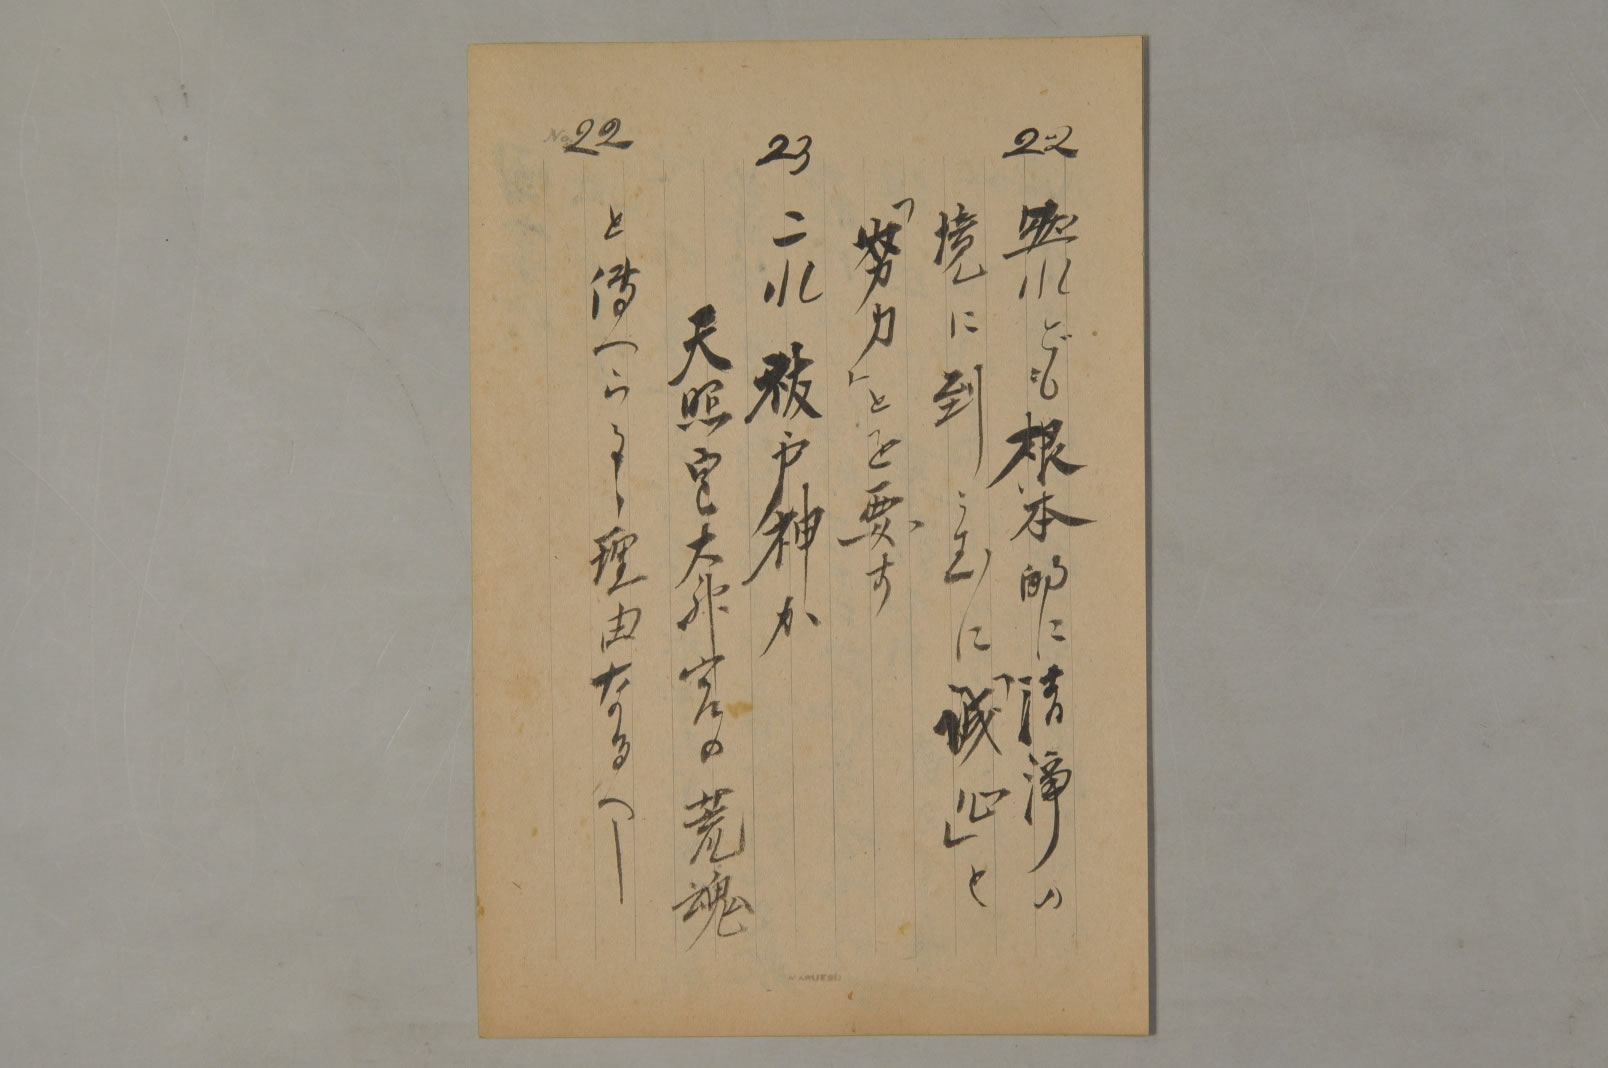 22 然れども根本的に清浄の
境に到るに「誠心」と
「努力」とを要す
23 二れ 祓戸神か
天照皇大神宮の荒魂
と傳へらるゝ理由なるへし
No. 22